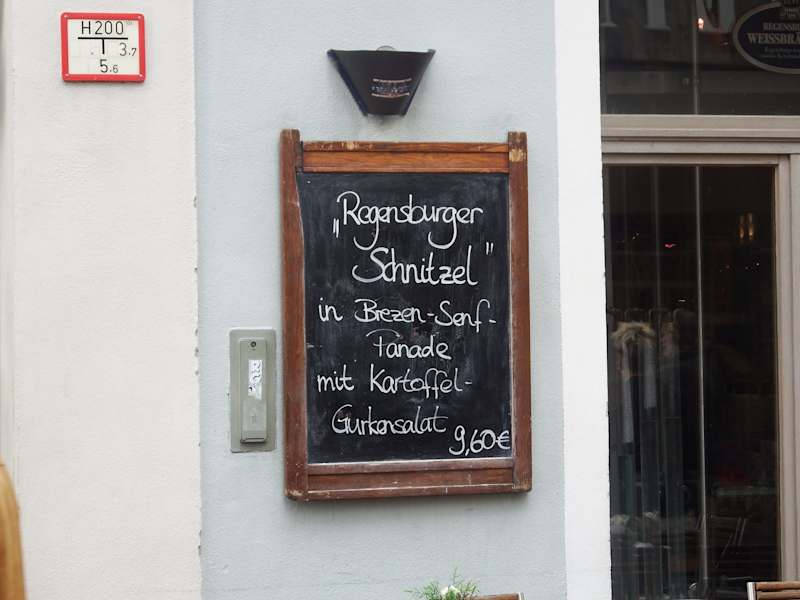 H200
3.7
5.6
„Regensburger
Schnitzel"
in Brezen-Senf-
Panade
mit Kartoffel-
Gurkensalat
9,60€